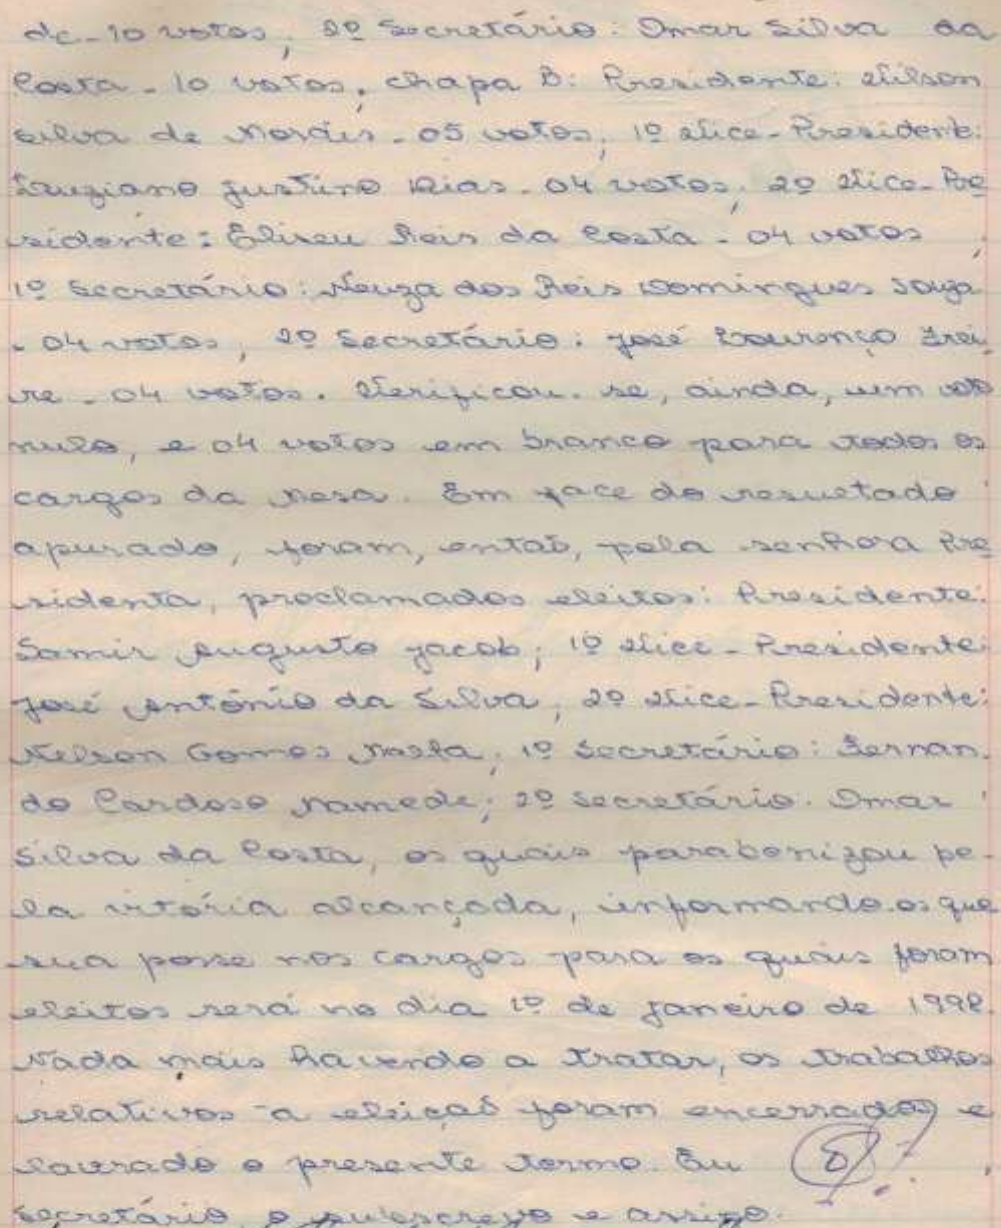 de - 10 votos, 2º Secretário: Omar Silva da
Costa - 10 votos. chapa B: Presidente: Nilson
Silva de Morais - 05 votos, 1º Vice-Presidente:
Luiziano Justino Dias - 04 votos, 2º Vice-Pre
sidente: Eliseu Reis da Costa - 04 votos,
1º Secretário: Neuza dos Reis Domingues Souza
- 04 votos, 2º Secretário: José Lourenço Frei
re - 04 votos. Verificou-se, ainda, um voto
nulo, e 04 votos em branco para todos os
cargos da Mesa. Em face do resultado
apurado, foram, então, pela senhora Pre
sidenta, proclamados eleitos: Presidente:
Samir Augusto Jacob; 1º Vice-Presidente:
José Antônio da Silva, 2º Vice-Presidente:
Nelson Gomes; 1º Secretário: Fernan-
do Cardoso Namede; 2º Secretário. Omar
Silva da Costa, os quais parabenizou pe-
la vitória alcançada, informando-os que
sua posse nos cargos para os quais foram
eleitos será no dia 1º de janeiro de 1998.
Nada mais havendo a tratar, os trabalhos
relativos a eleição foram encerrados e
lavrado o presente termo. Eu
Secretário, o subscrevo e assino.